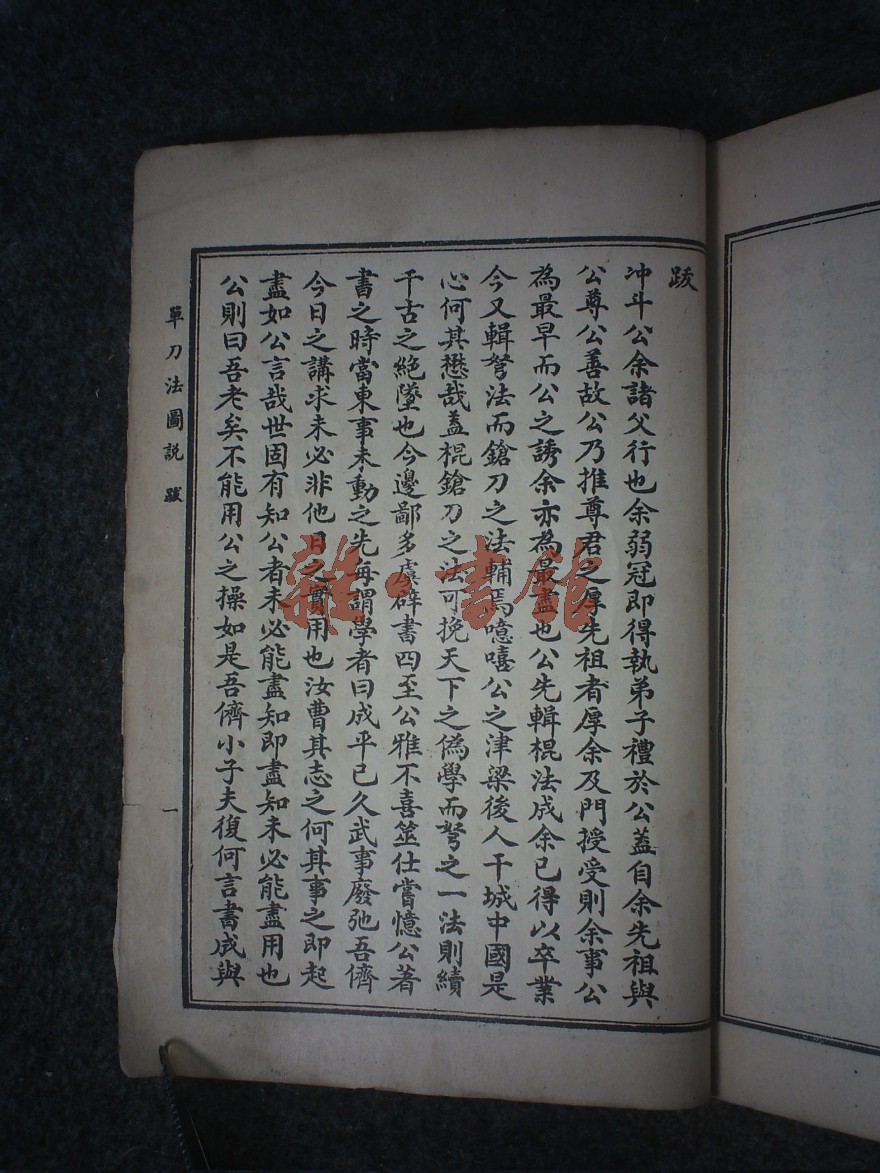 跋
冲斗公余諸父行也余弱冠即得執弟子禮於公蓋自余先祖與
公尊公善故公乃推尊君之厚先祖者厚余及門授受則余事公
為最早而公之誘余亦為最盡也公先輯棍法成余已得以卒業
今又輯弩法而鎗刀之法輔焉噫嘻公之津梁後人干城中國是
心何其懋哉蓋棍鎗刀之法可挽天下之偽學而弩之一法則續
千古之絶墜也今邊鄙多虞辟書四至公雅不喜筮仕嘗憶公著
書之時當東事未動之先每謂學者曰成平已久武事廢弛吾儕
今日之講求未必非他日之實用也汝曹其志之何其事之即起
盡如公言哉世固有知公者未必能盡知即盡知未必能盡用也
公則曰吾老矣不能用公之操如是吾儕小子夫復何言書成與
單刀法圖説 跋
一
雜·書館